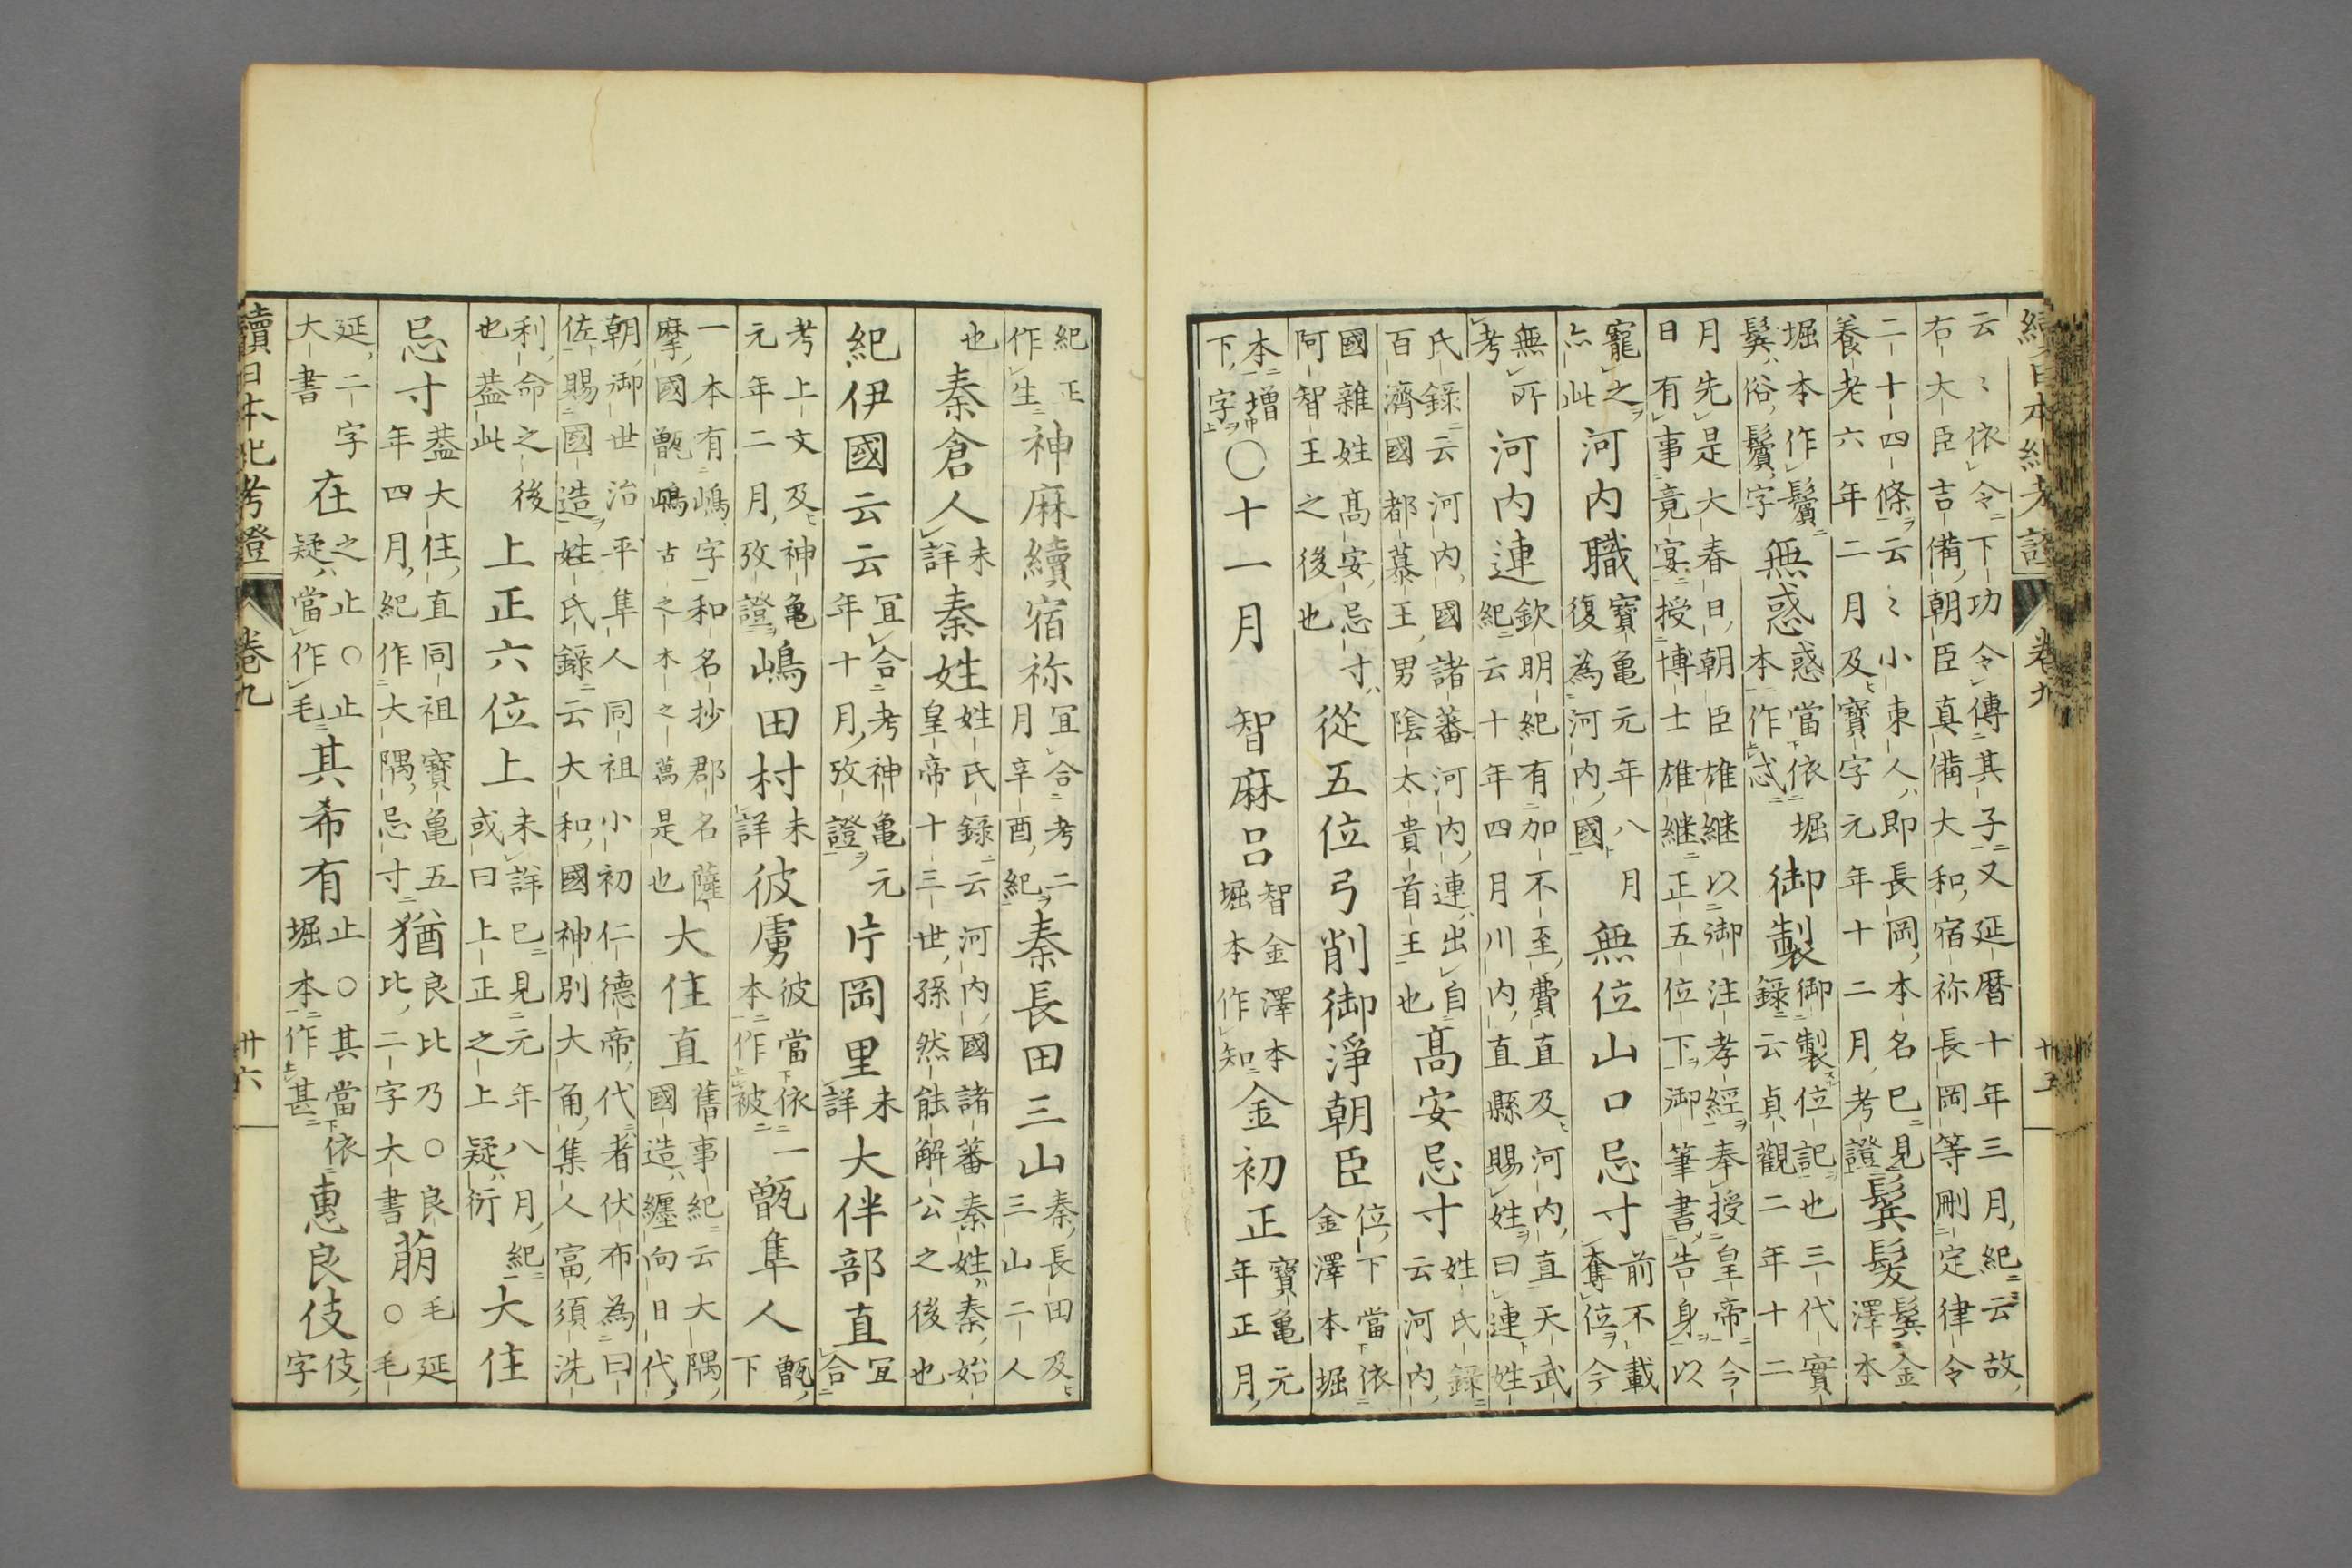 續日本紀考證 卷九 廿五
云〻依令下功令傳其子又延曆十年三月紀云故
右大臣吉備朝臣真備大和宿祢長岡等刪定律令
二十四條云〻小東人即長岡本名已見養老六年二月及寶字元年十二月考證鬒髮鬒金澤本
堀本作鬢鬒俗鬢字無惑惑當依堀本作忒御製御製位記也三代實錄云貞觀二年十二
月先是大春日朝臣雄継以御注孝經奉授皇帝今
日有事竟宴授博士雄継正五位下御筆書告身以
寵之亦此河内職寶亀元年八月復為河内國無位山口忌寸前不載奪位今
無所考河内連欽明紀有加不至費直及河内直天武紀云十年四月川内直縣賜姓曰連姓
氏錄云河内國諸蕃河内連出自百濟國都慕王男陰太貴首王也高安忌寸姓氏錄云河内
國雜姓高安忌寸阿智王之後也從五位弓削御淨朝臣位下當依金澤本堀
本増下字〇十一月智麻呂智金澤本堀本作知金初正寶亀元年正月
紀正作生神麻續宿祢宜合考二月辛酉紀秦長田三山秦長田及三山二人
也秦倉人未詳秦姓姓氏錄云河内國諸蕃秦姓秦始皇帝十三世孫然能解公之後也
紀伊國云云宜合考神亀元年十月攷證片岡里未詳大伴部直宜合
考上文及神亀元年二月攷證嶋田村未詳彼虜彼當依本作被一甑隼人甑下
一本有嶋字和名抄郡名薩摩國甑嶋古之木之萬是也大住直舊事紀云大隅國造纏向日代
朝御世治平隼人同祖小初仁德帝代者伏布為曰
佐賜國造姓氏錄云大和國神別大角集人富須洗
利命之後也蓋此上正六位上未詳已見元年八月紀或曰上正之上疑衍大住
忌寸蓋大住直同祖寶亀五年四月紀作大隅忌寸猶良比乃〇良比二字大書萠毛延〇毛
延二字大書在之止〇止疑當作毛其希有止〇其當依堀本作甚惠良伎伎字
續日本紀考證 卷九 廿六